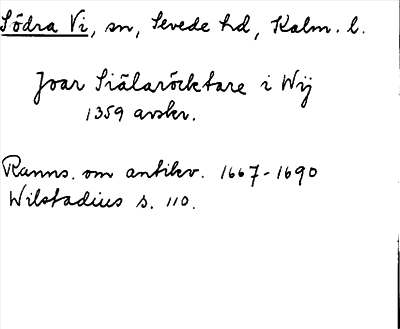 Södra Vi, sn, Sevede hd, Kalm. l.
Joar Siälaröcktare i Wij
1359 avskr.
Ranns. om antikv. 1667-1690
Wilstadius s. 110.